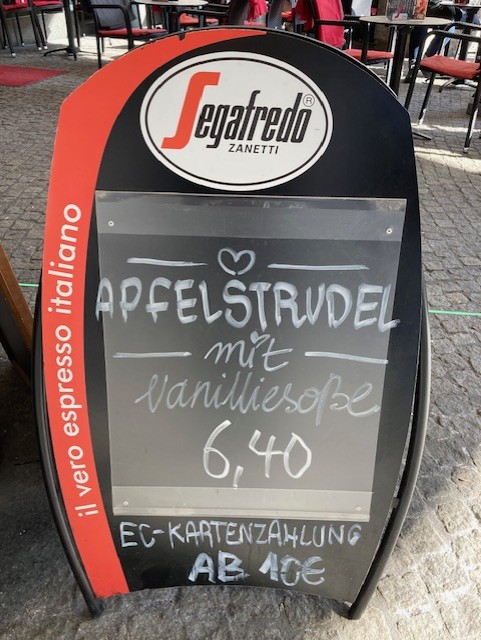 Segafredo®
ZANETTI
il vero espresso italiano
APFELSTRUDEL
mit
Vanilliesoße
6,40
EC-KARTENZAHLUNG
AB 10€